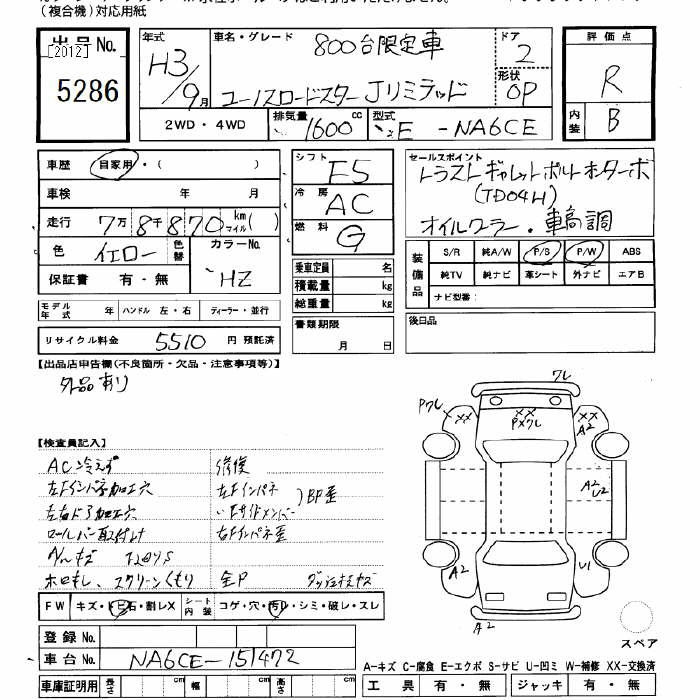 (複合機)対応用紙
出品No.
[2012]
5286
年式 H3/9月
車名・グレード 800台限定車
ユーノスロードスター Jリミテッド
ドア 2
形状 OP
評価点 R
内装 B
2WD・4WD
排気量 1600 cc
型式 E-NA6CE
車歴 自家用・( )
車検 年 月
走行 7万8千870km マイル( )
色 イエロー 色替 カラーNo. HZ
保証書 有・無
シフト F5
冷房 AC
燃料 G
乗車定員 名
積載量 kg
総重量 kg
セールスポイント
トラストギャレットボルトオンターボ
(TD04H)
オイルクーラー・車高調
装備品 S/R 純A/W P/S P/W ABS
純TV 純ナビ 革シート 外ナビ エアB
ナビ型番:
モデル年式 年 ハンドル 左・右 ディーラー・並行
リサイクル料金 5510 円 預託済
書類期限 月 日
後日品
【出品店申告欄(不良箇所・欠品・注意事項等)】
外品あり
【検査員記入】
AC冷えず
左Fインパネ加工穴
左右ドア加工穴
ロールバー取付け
修復
左Fインパネ
右Fインパネ歪
全P
ホロもし、スクリーンくもり
FW キズ・トビ石・割レX シート内装 コゲ・穴・汚レ・シミ・破レ・スレ
ワレ
Pワレ
XX
XX
PXワレ
XX
A2
A2
U2
A2
U1
A2
スペア
登録No.
車台No. NA6CE-151472
車庫証明用 長さ cm 幅 cm 高さ cm
A-キズ C-腐食 E-エクボ S-サビ U-凹ミ W-補修 XX-交換済
工具 有・無 ジャッキ 有・無